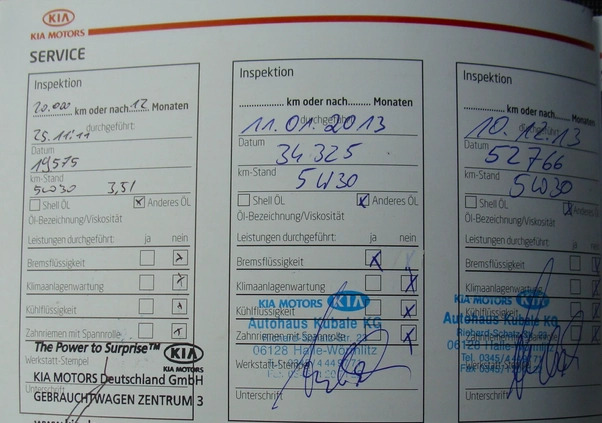 KIA
KIA MOTORS
SERVICE
Inspektion
20.000 km oder nach 12 Monaten
durchgeführt:
25.11.11
Datum
19575
km-Stand
5W30 3,5l
Shell ÖL Anderes ÖL
Öl-Bezeichnung/Viskosität
Leistungen durchgeführt: ja nein
Bremsflüssigkeit
Klimaanlagenwartung
Kühlflüssigkeit
Zahnriemen mit Spannrolle
The Power to Surprise™ KIA
KIA MOTORS
Werkstatt-Stempel
KIA MOTORS Deutschland GmbH
Unterschrift
GEBRAUCHTWAGEN ZENTRUM 3
Inspektion
km oder nach Monaten
durchgeführt:
11.01.2013
Datum
34.325
km-Stand
5W30
Shell ÖL Anderes ÖL
Öl-Bezeichnung/Viskosität
Leistungen durchgeführt: ja nein
Bremsflüssigkeit
Klimaanlagenwartung
KIA MOTORS KIA
Kühlflüssigkeit
Autohaus Kubale KG
Zahnriemen mit Spannrolle
06128 Halle-Wörmlitz
Werkstatt-Stempel
Unterschrift
Inspektion
km oder nach
durchgeführt:
10.12.13
Datum
52766
km-Stand
5W30
Shell ÖL Anderes ÖL
Öl-Bezeichnung/Viskosität
Leistungen durchgeführt: ja
Bremsflüssigkeit
Klimaanlagenwartung
KIA MOTORS KIA
Kühlflüssigkeit
Autohaus Kubale KG
Zahnriemen mit
06128
Tel. 0345/4
Werkstatt-Stempel
Unterschrift